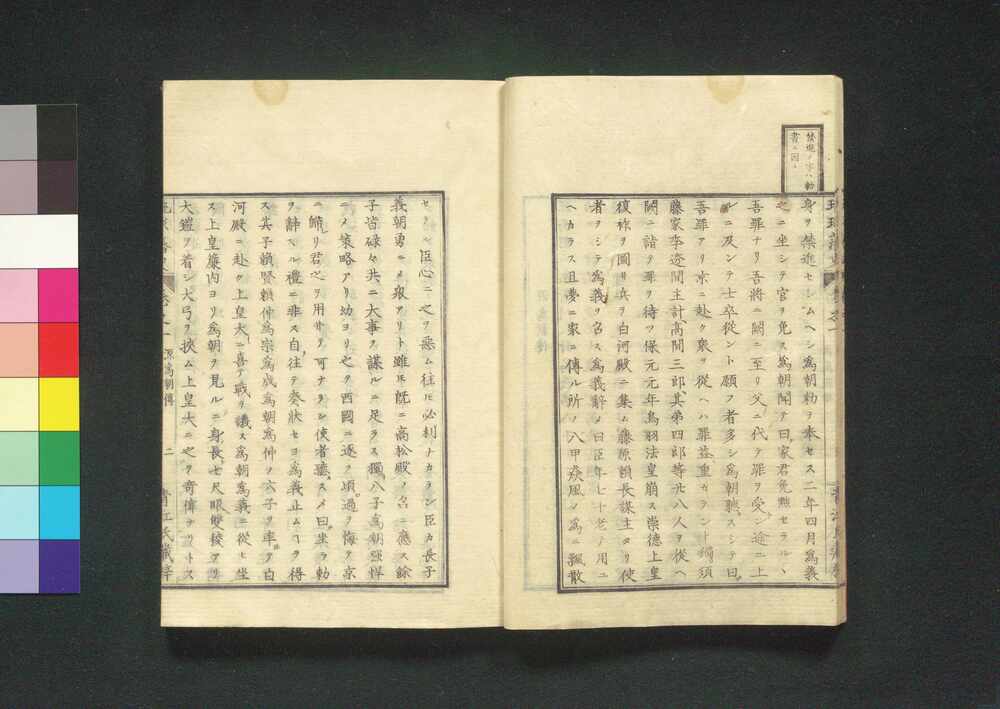 身ヲ禁進セシムヘシ為朝勅ヲ奉セス二年四月為義
之ニ坐シテ官ヲ免ス為朝聞テ曰家君免黜セラルヽ
吾罪ナリ吾將ニ闕ニ至リ父ニ代テ罪ヲ受ン途ニ上
ルニ及ンテ士卒從ント願フ者多シ為朝聴スシテ曰
吾罪アリ京ニ赴ク衆ヲ從ヘハ罪益重カラント獨須
藤家季遼間主計高間三郎其弟四郎等廿八人ヲ從ヘ
闕ニ詣テ罪ヲ待ツ保元元年鳥羽法皇崩ス崇德上皇
復祚ヲ圖リ兵ヲ白河殿ニ集ム藤原頼長謀主タリ使
者ヲシテ為義ヲ召ス為義辭メ曰臣年七十老テ用ユ
ヘカラス且夢ニ家ニ傳ル所ノ八甲猋風ノ為ニ飄散
セラル臣心ニ之ヲ惡ム往モ必利ナカラン臣カ長子
義朝勇ニメ衆アリト雖モ既ニ高松殿ノ召ニ應ス餘
子皆碌々共ニ大事ヲ謀ルニ足ラス獨八子為朝強悍
ニメ策略アリ幼ヨリ之ヲ西國ニ逐フ頃過ヲ悔テ京
ニ皈リ君之ヲ用サハ可ナラン使者聴スメ曰坐ラ勅
ヲ辭スル禮ニ非ス自往テ奏狀セヨ為義止ムヿヲ得
ス其子頼賢頼仲為宗為成為朝為仲ノ六子ヲ率テ白
河殿ニ赴ク上皇大ニ喜テ戰ヲ議ス為朝為義ニ從ヒ坐
ス上皇簾内ヨリ為朝ヲ見ルニ身長七尺眼雙稜アリ
大鎧ヲ着シ大弓ヲ挾ム上皇大ニ之ヲ奇偉ナリトス
源為朝傳
二
青江氏藏